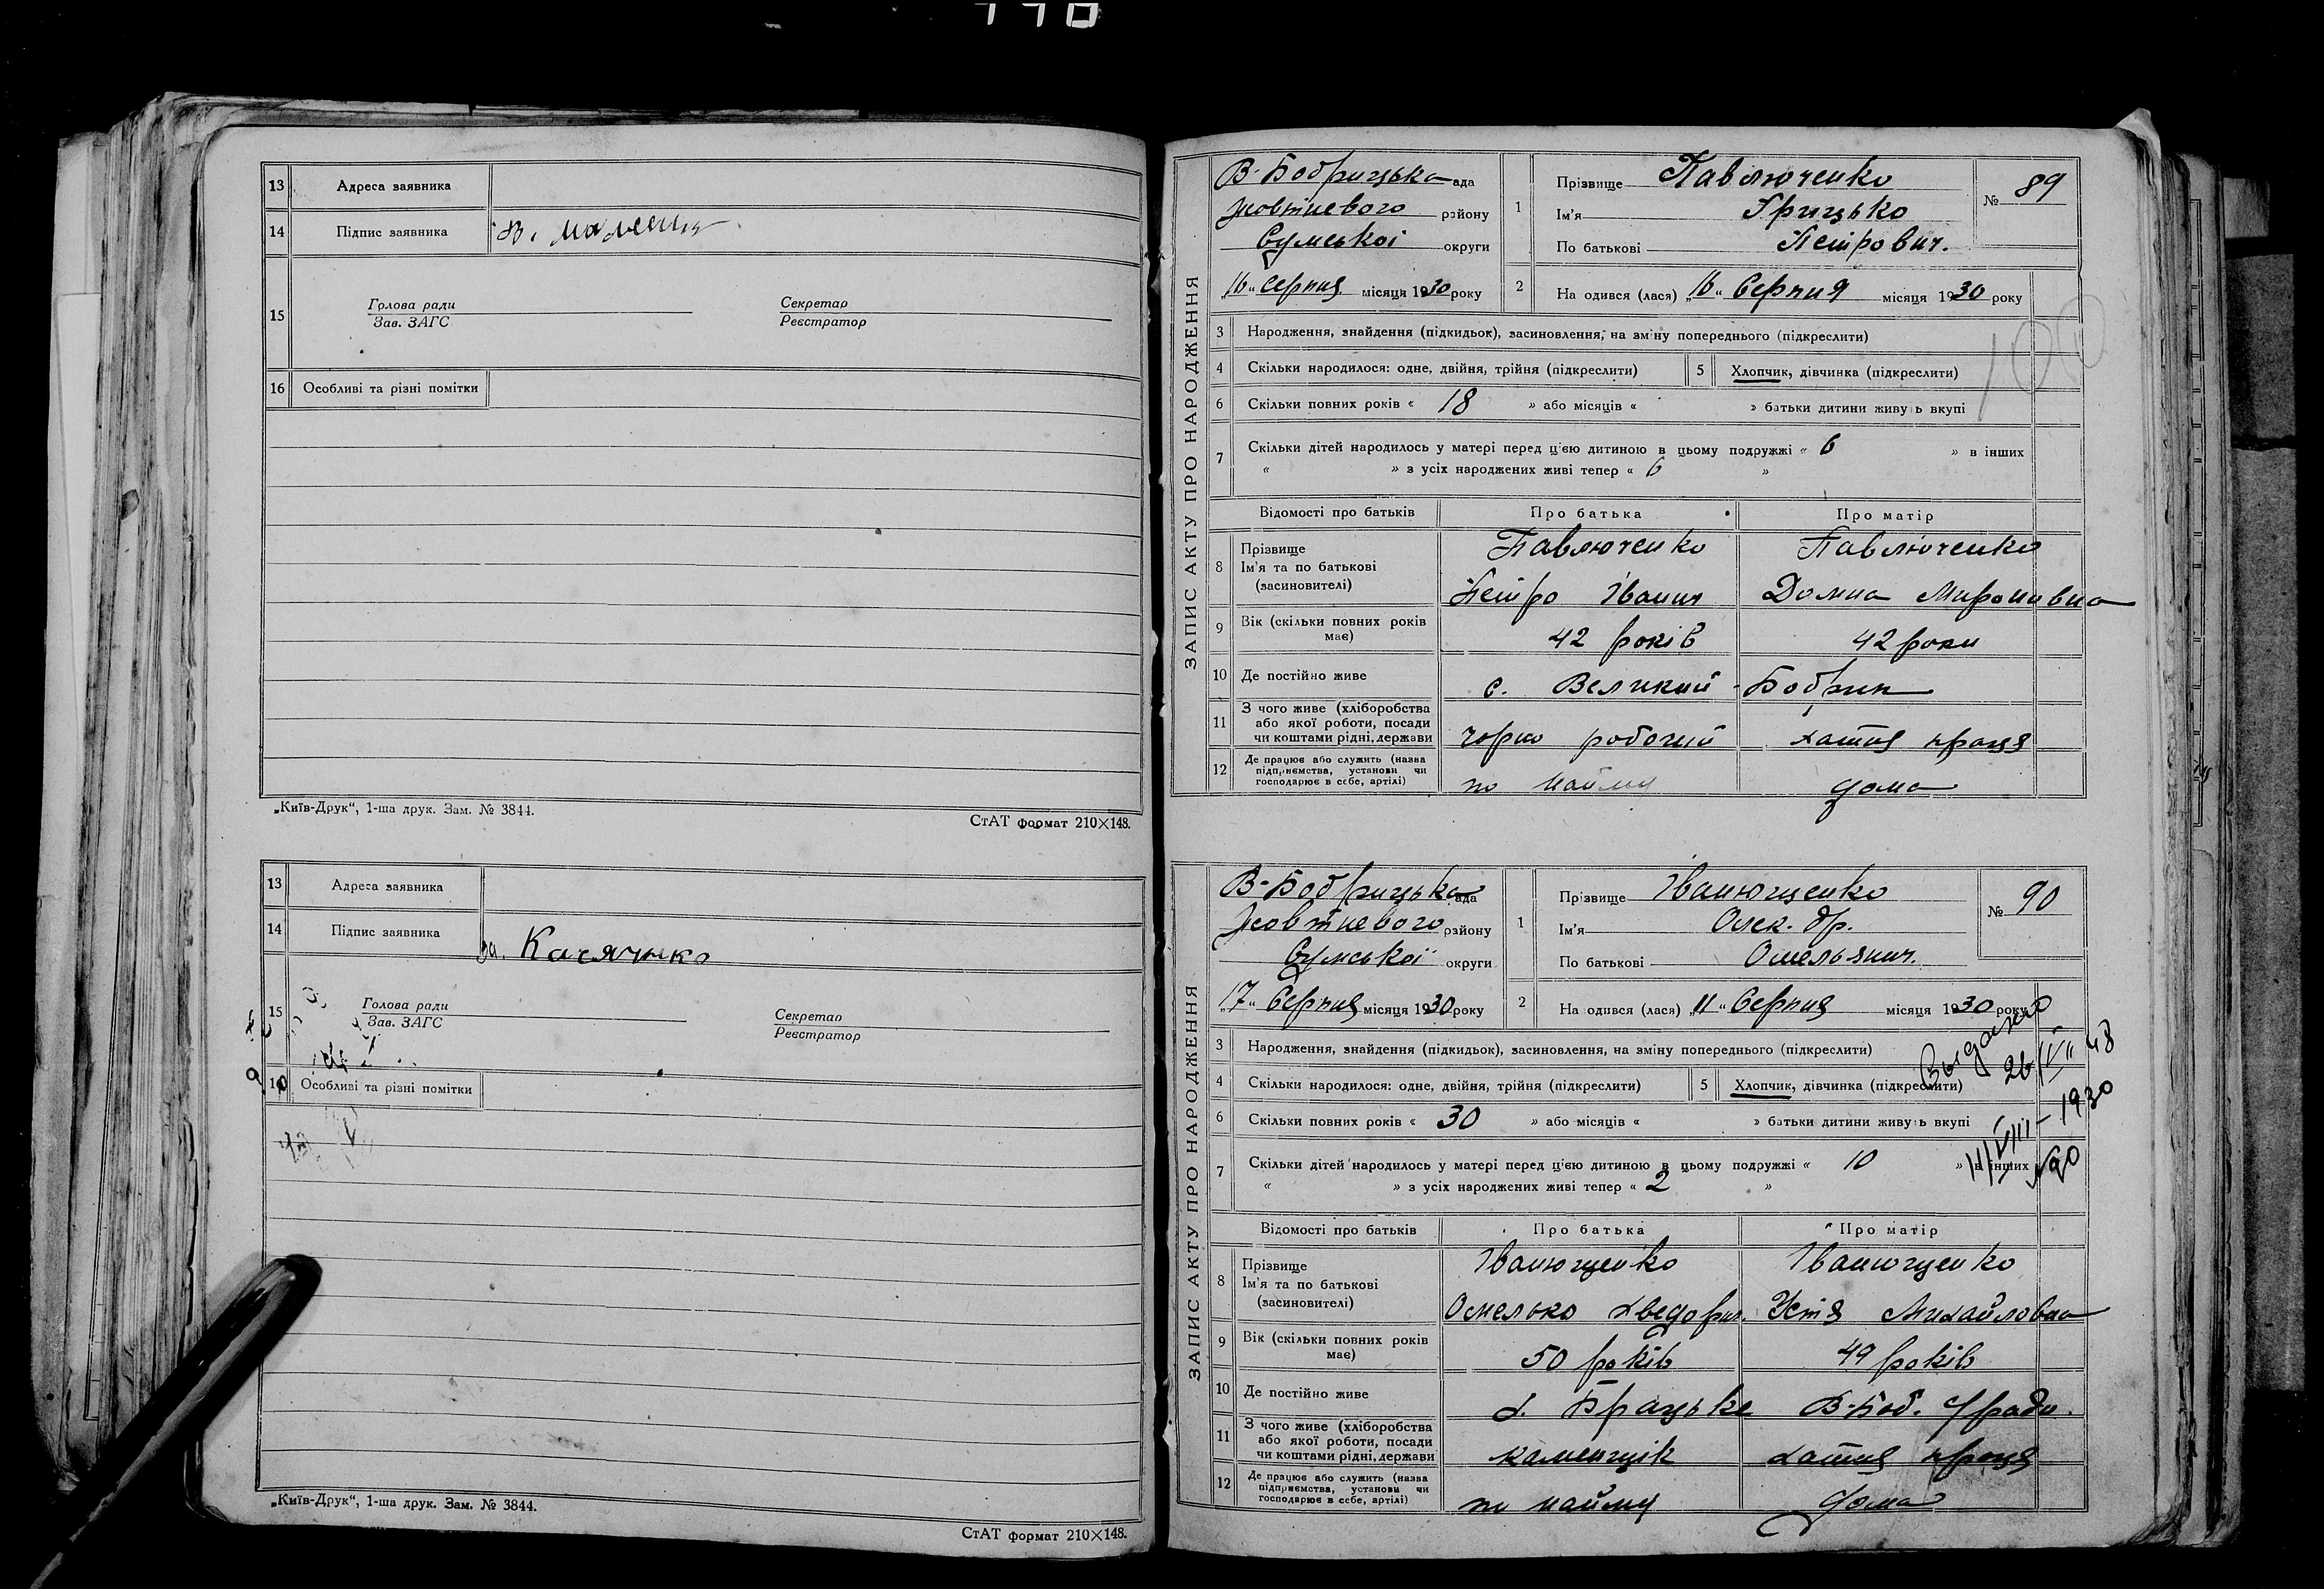 13 Адреса заявника
14 Підпис заявника
15 Голова ради Секретар
Зав. ЗАГС Реєстратор
16 Особливі та різні помітки
„Київ-Друк“, 1-ша друк. Зам. № 3844.
СтАТ формат 210×148.
13 Адреса заявника
14 Підпис заявника
15 Голова ради Секретар
Зав. ЗАГС Реєстратор
16 Особливі та різні помітки
„Київ-Друк“, 1-ша друк. Зам. № 3844.
СтАТ формат 210×148.
ЗАПИС АКТУ ПРО НАРОДЖЕННЯ
В-Бобрицька рада
Жовтневого району
Сумської округи
„16“ Серпня місяця 1930 року
1 Прізвище Павлюченко
Ім'я Грицько
По батькові Петрович.
№ 89
2 Народився (лася) „16“ Серпня місяця 1930 року
100
3 Народження, знайдення (підкидьок), засиновлення, на зміну попереднього (підкреслити)
4 Скільки народилося: одне, двійня, трійня (підкреслити) 5 Хлопчик, дівчинка (підкреслити)
6 Скільки повних років « 18 » або місяців « » батьки дитини живуть вкупі
7 Скільки дітей народилось у матері перед цією дитиною в цьому подружжі « 6 » в інших
« » з усіх народжених живі тепер « 6 »
Відомості про батьків Про батька Про матір
8 Прізвище Павлюченко Павлюченко
Ім'я та по батькові
(засиновителі) Петро Іванич Домна Миронивна
9 Вік (скільки повних років має) 42 років 42 роки
10 Де постійно живе с. Великий Бобрик
11 З чого живе (хліборобства
або якої роботи, посади
чи коштами рідні, держави чорно робочий хатня праця
12 Де працює або служить (назва
підприємства, установи чи
господарює в себе, артілі) по найму дома
ЗАПИС АКТУ ПРО НАРОДЖЕННЯ
В-Бобрицька рада
Жовтневого району
Сумської округи
„17“ Серпня місяця 1930 року
1 Прізвище Іванющенко
Ім'я Олек. др.
По батькові Омельянич.
№ 90
2 Народився (лася) „11“ Серпня місяця 1930 року
3 Народження, знайдення (підкидьок), засиновлення, на зміну попереднього (підкреслити)
4 Скільки народилося: одне, двійня, трійня (підкреслити) 5 Хлопчик, дівчинка (підкреслити)
6 Скільки повних років « 30 » або місяців « » батьки дитини живуть вкупі
7 Скільки дітей народилось у матері перед цією дитиною в цьому подружжі « 10 » в інших
« » з усіх народжених живі тепер « 2 »
11/VIII-1930
№90
Відомості про батьків Про батька Про матір
8 Прізвище Іванющенко Іванющенко
Ім'я та по батькові
(засиновителі) Омелько Хведорич. Устя Михайловна
9 Вік (скільки повних років має) 50 років 49 років
10 Де постійно живе х. Брацьке В-Боб. с/ради.
11 З чого живе (хліборобства
або якої роботи, посади
чи коштами рідні, держави каменщік хатня праця
12 Де працює або служить (назва
підприємства, установи чи
господарює в себе, артілі) по найму дома